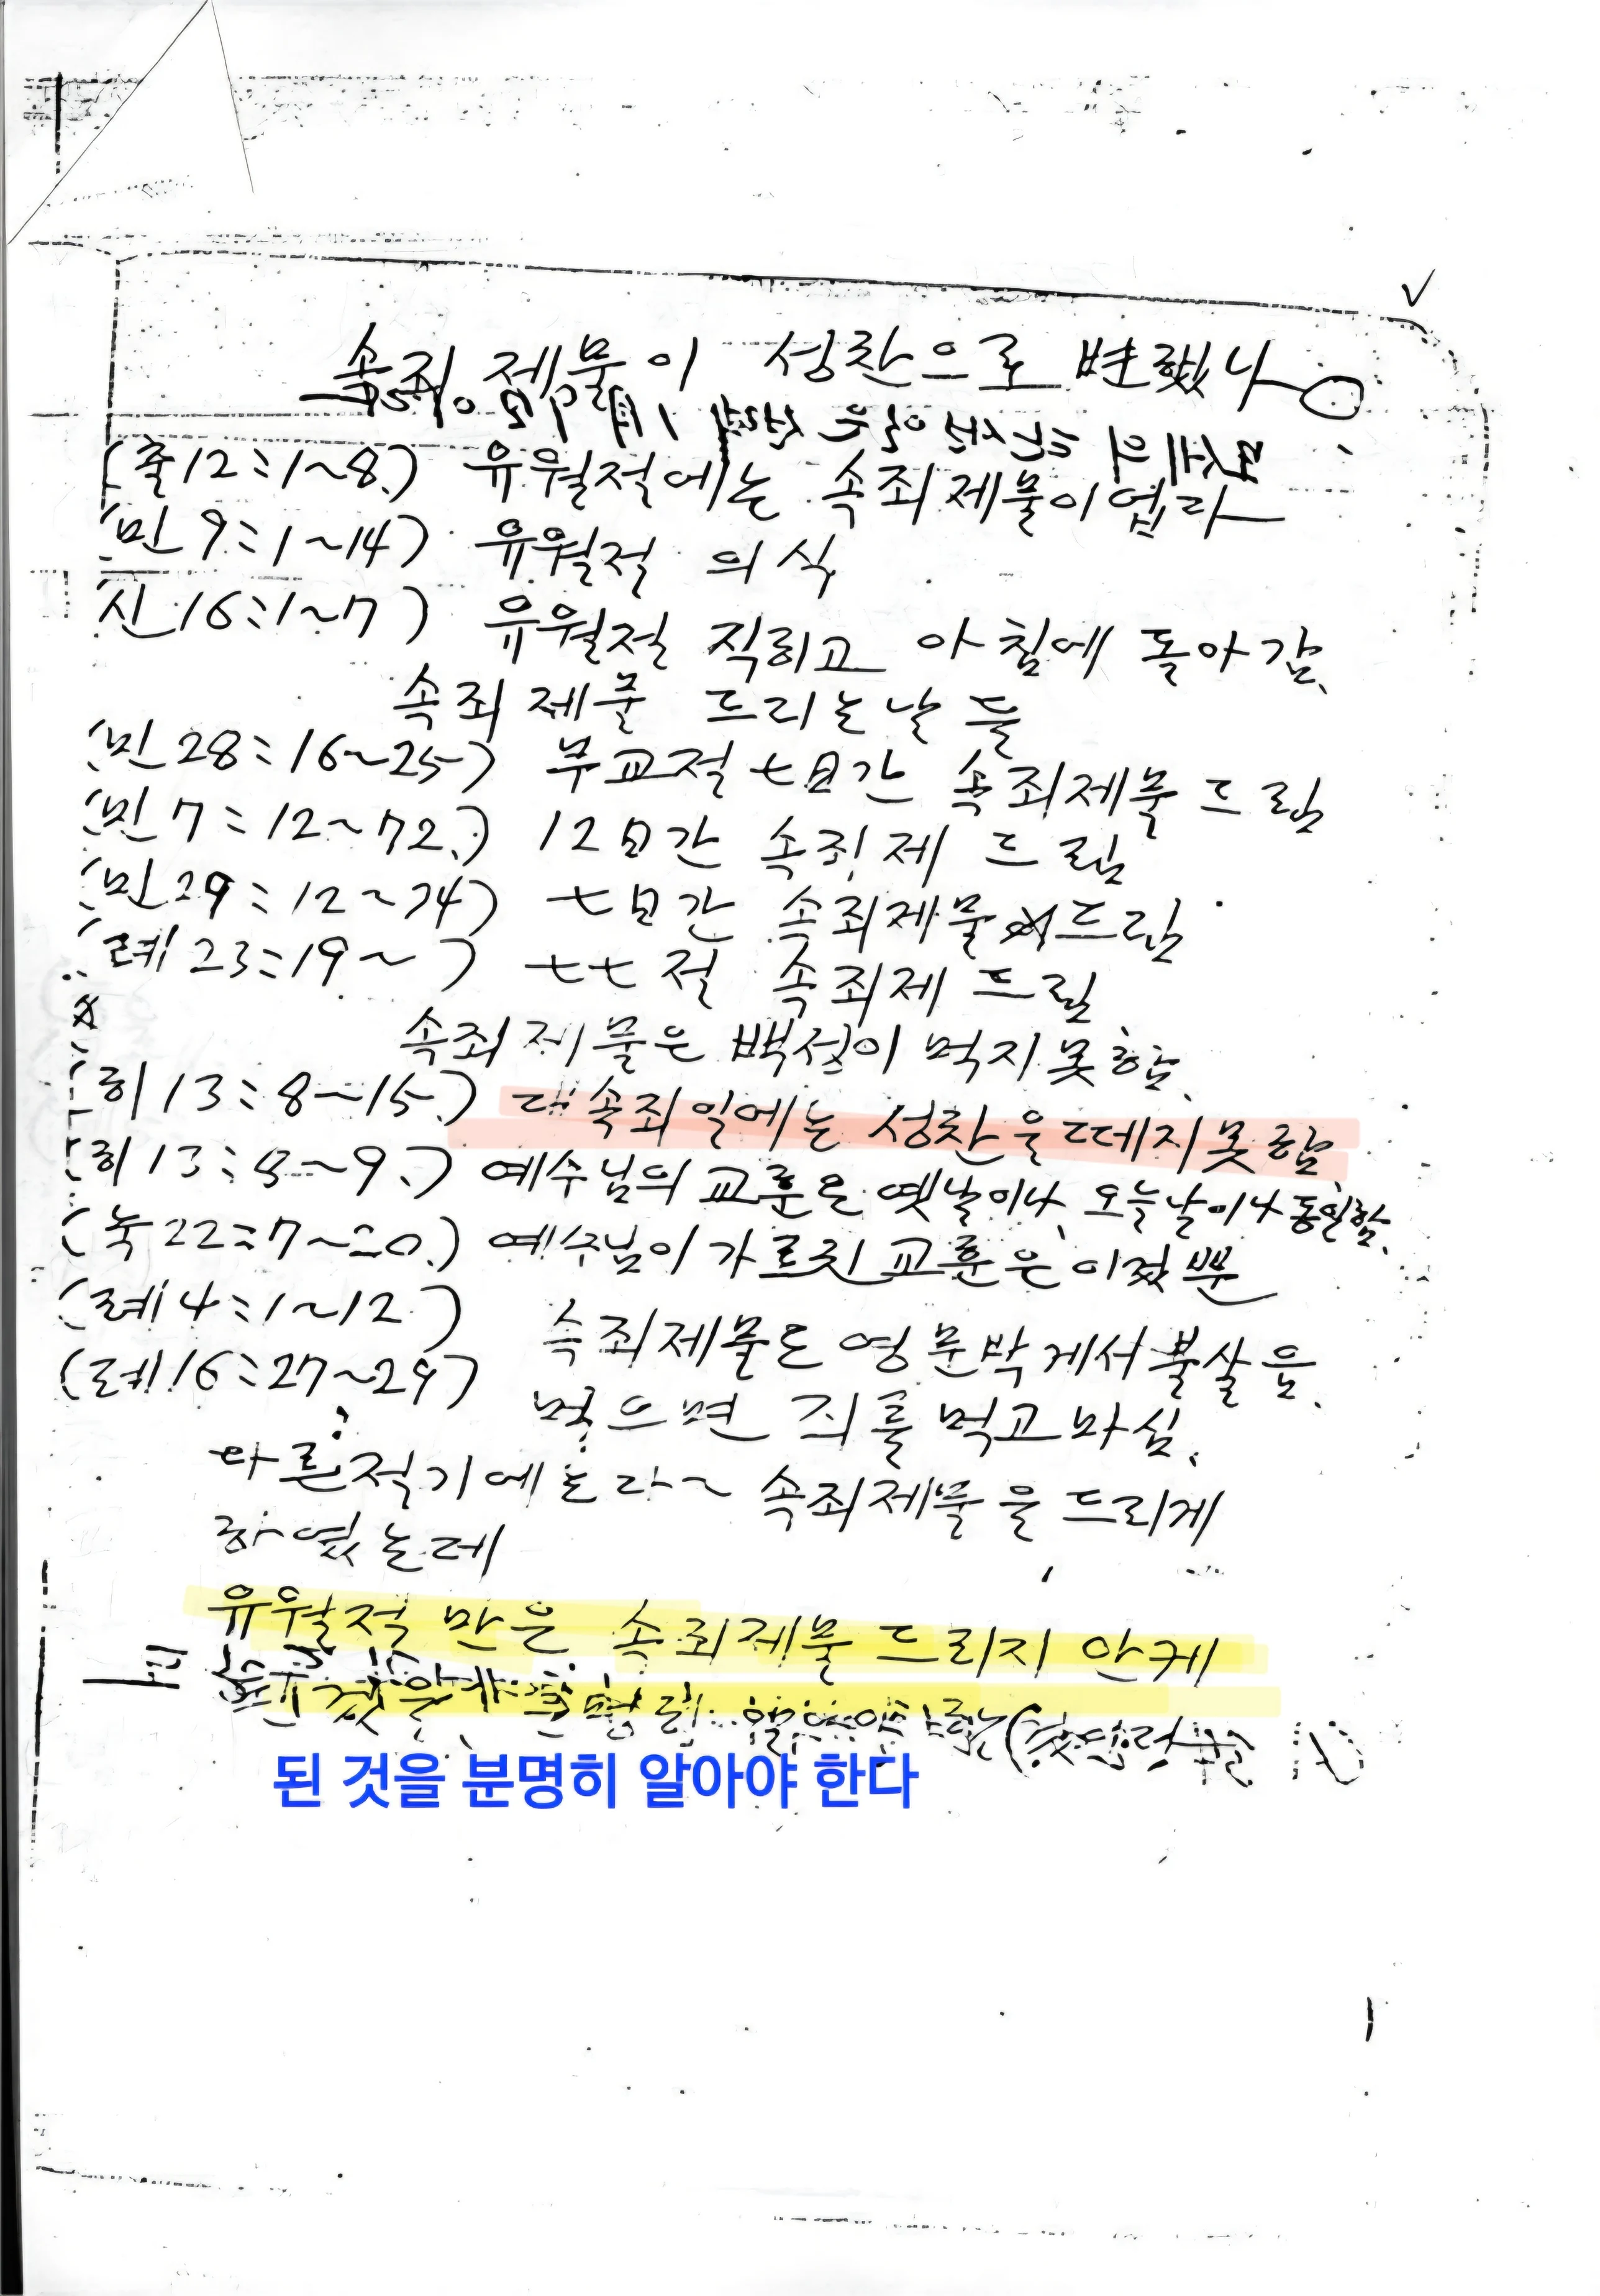 속죄 제물이 성찬으로 변했나
(출12:1~8.) 유월절에는 속죄제물이 없다
(민 9:1~14) 유월절 의식
신 16:1~7) 유월절 직히고 아침에 돌아감.
속죄 제물 드리는 날들
(민 28:16~25) 무교절 七日간 속죄제물 드림
(민 7:12~72.) 12日간 속죄제 드림
(민 29:12~34) 七日간 속죄제물 드림
(레 23:19~ ) 七七절 속죄제 드림
속죄 제물은 백성이 먹지 못함.
(히 13:8~15.) 대속죄일에는 성찬을 떼지 못함
(히 13:8~9.) 예수님의 교훈은 옛날이나, 오늘날이나 동일함.
(눅 22:7~20.) 예수님이 가르친 교훈은 이것뿐
(레 4:1~12.) 속죄제물은 영문박게서 불살음.
(레 16:27~29) 먹으면 죄를 먹고 마심.
다른절기에는 다~ 속죄제물을 드리게
하였는데
유월절 만은 속죄제물 드리지 안케
된 것을 분명히 알아야 한다